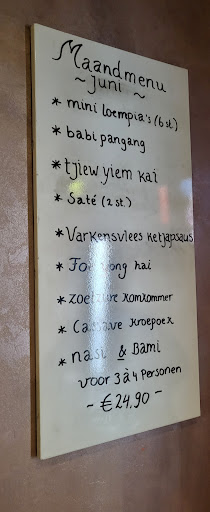 Maandmenu
~ juni ~
* mini loempia's (6 st.)
* babi pangang
* tjiew yiem kai
* Saté (2 st.)
* Varkensvlees ketjapsaus
* Foe yong hai
* zoetzure komkommer
* Cassave kroepoek
* nasi & Bami
voor 3 à 4 Personen
- €24,90 -